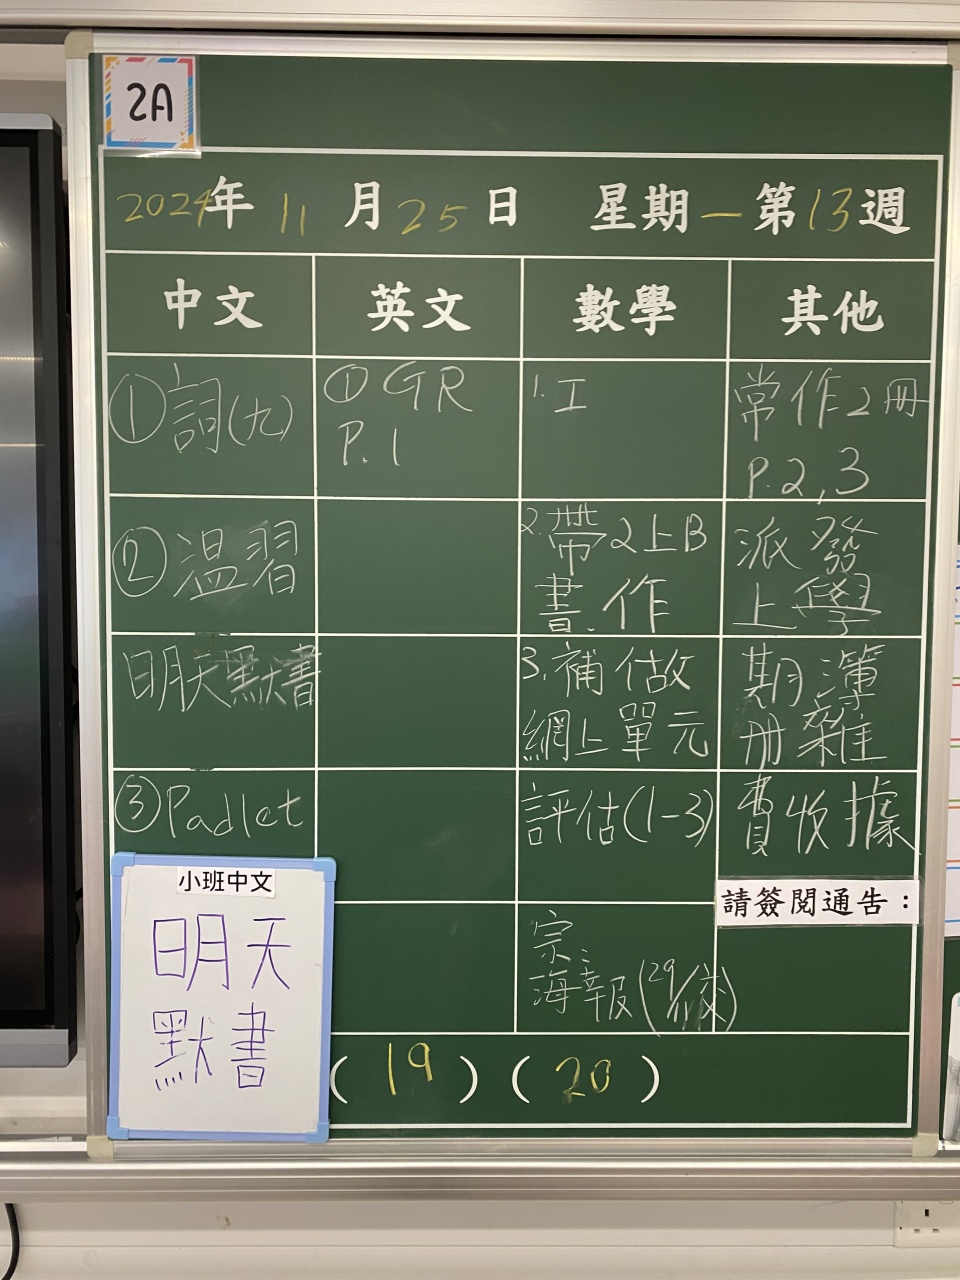 2A
2024年 11 月 25 日 星期一 第13週
中文 英文 數學 其他
①詞(九)
②温習
明天默書
③Padlet
小班中文
明天
默書
①GR
P.1
1.工
2.帶2上B
書、作
3.補估做
網上單元
評估(1-3)
宗:
海報(29/11交)
常作2冊
P.2,3
派發
上學
期簿
冊雜
費收據
請簽閱通告：
( 19 ) ( 20 )